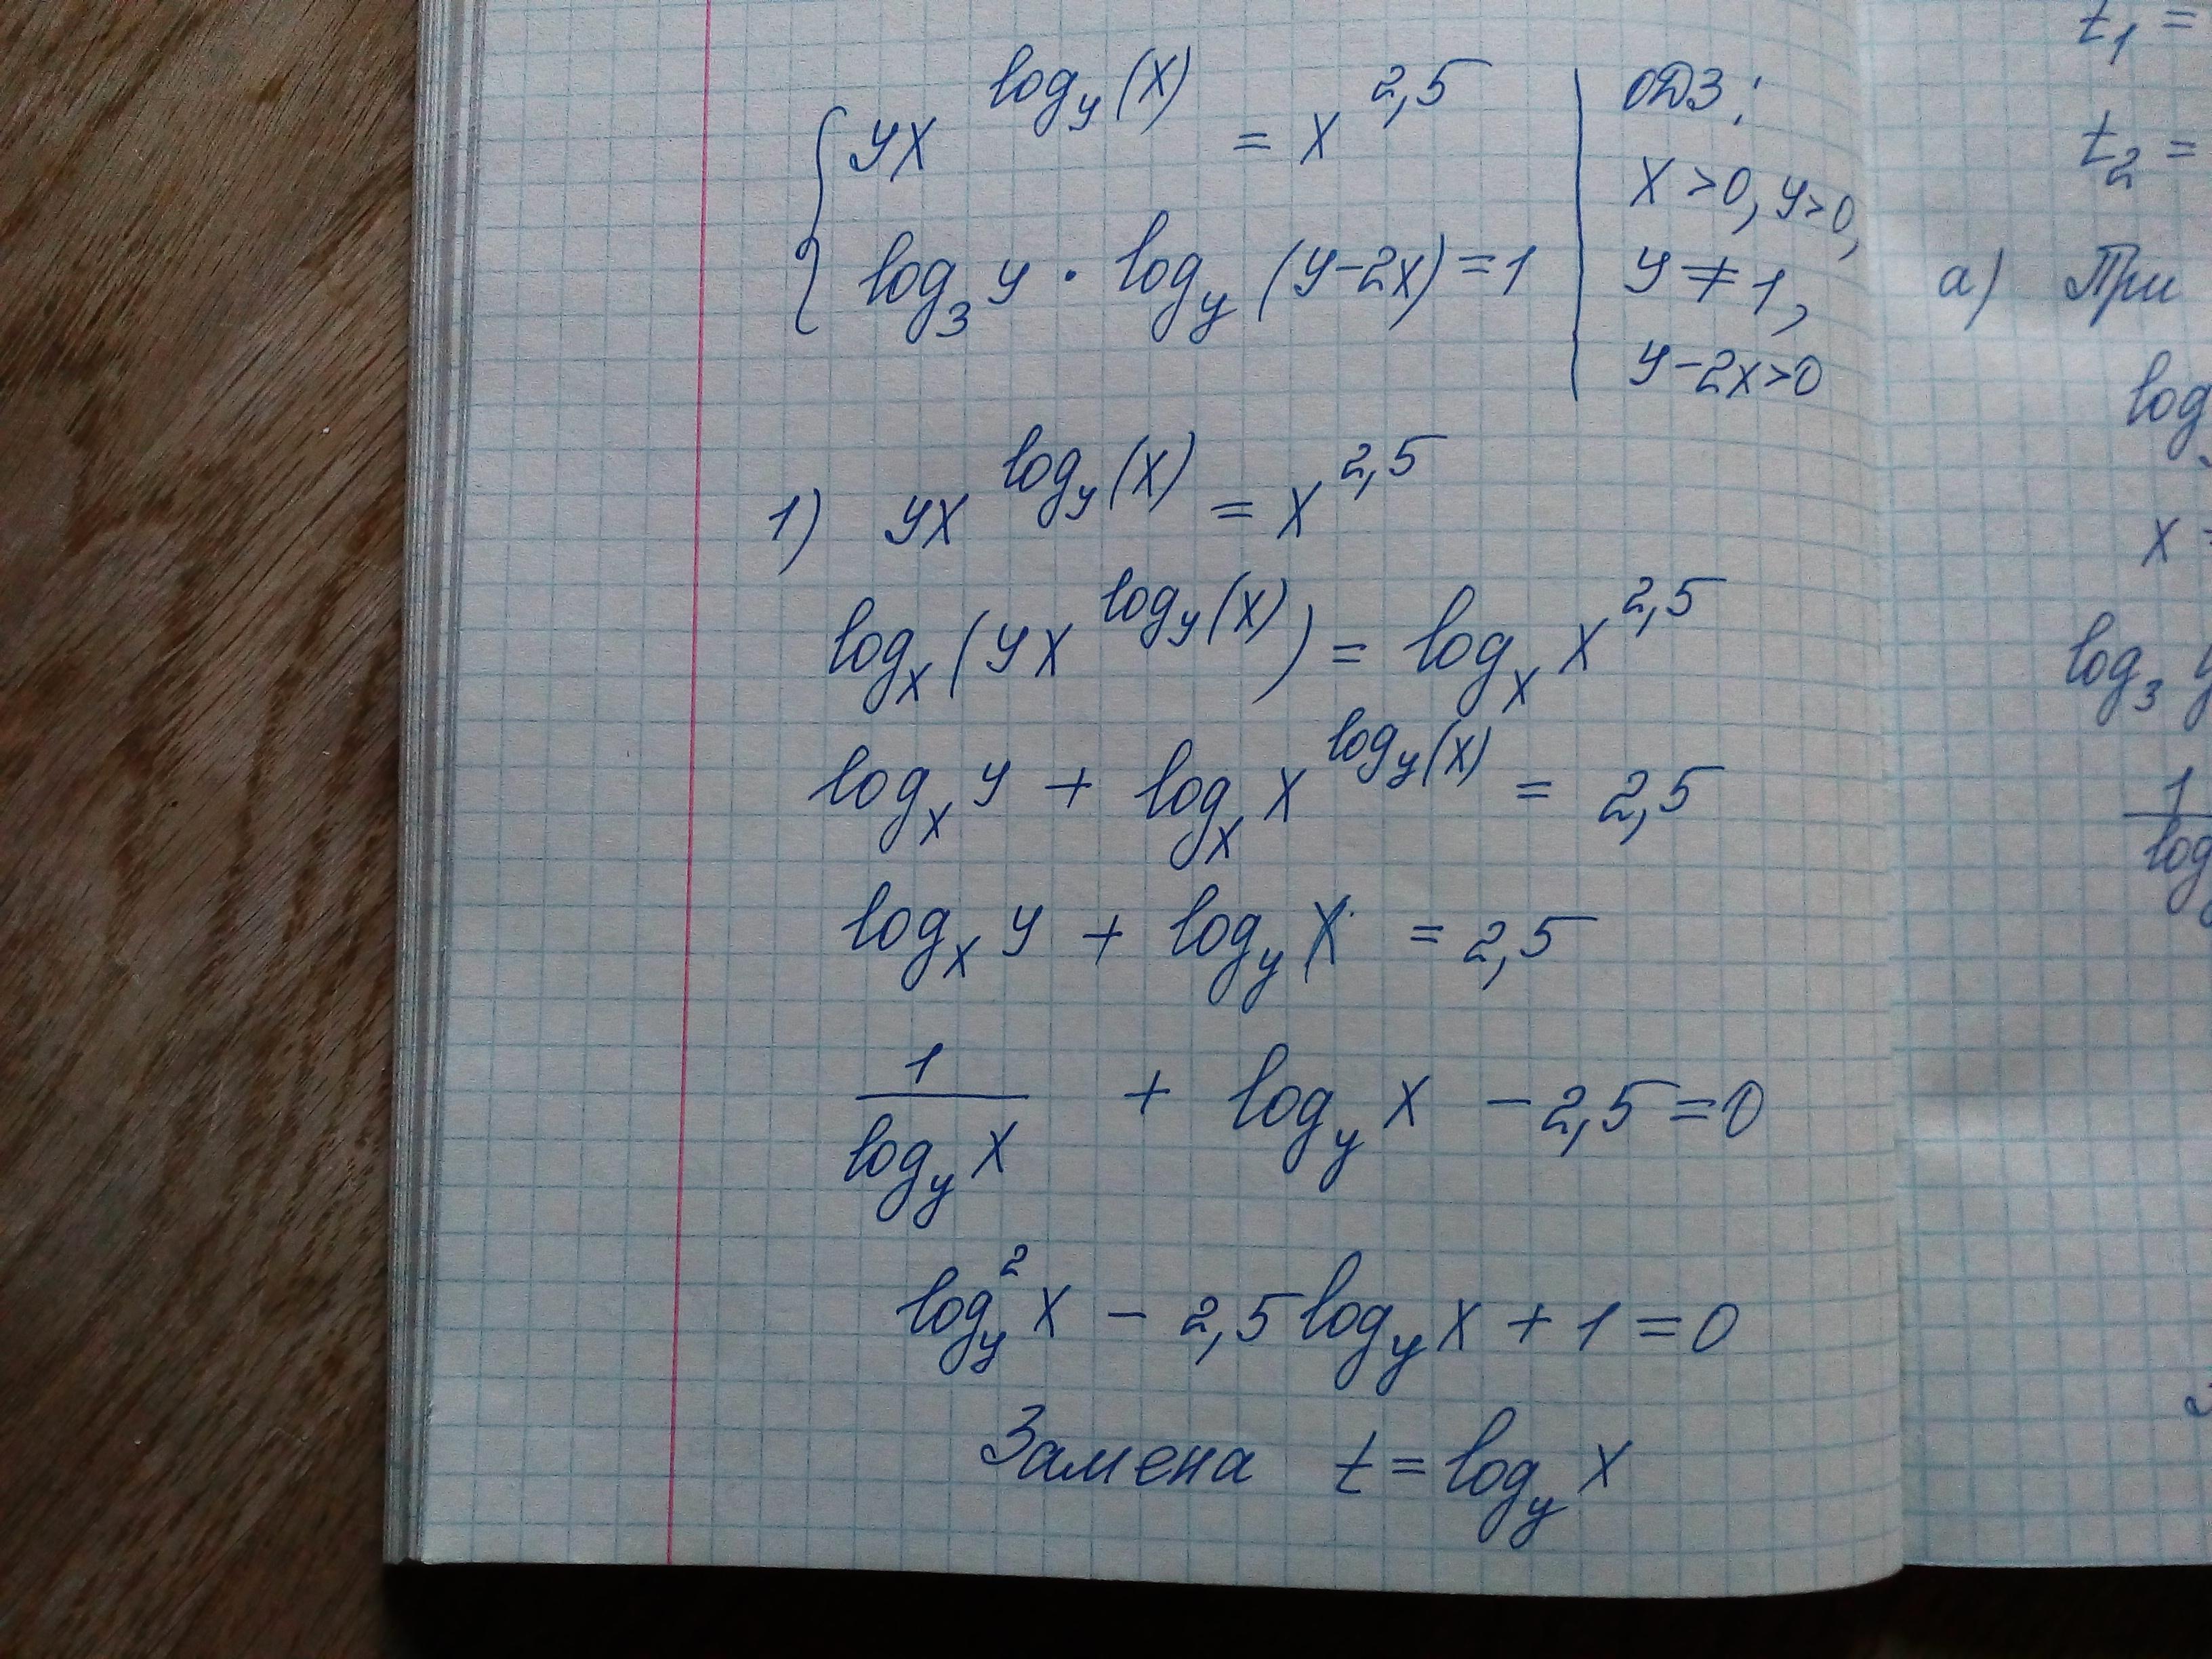 yx^{log_y(x)} = x^{2,5}
log_3 y · log_y (y-2x) = 1
ОДЗ:
x > 0, y > 0,
y ≠ 1,
y-2x > 0
1) yx^{log_y(x)} = x^{2,5}
log_x (yx^{log_y(x)}) = log_x x^{2,5}
log_x y + log_x x^{log_y(x)} = 2,5
log_x y + log_y x = 2,5
\frac{1}{log_y x} + log_y x - 2,5 = 0
log_y^2 x - 2,5 log_y x + 1 = 0
Замена t = log_y x
t_1 =
t_2 =
а) При
log
x
log_3 y
\frac{1}{log